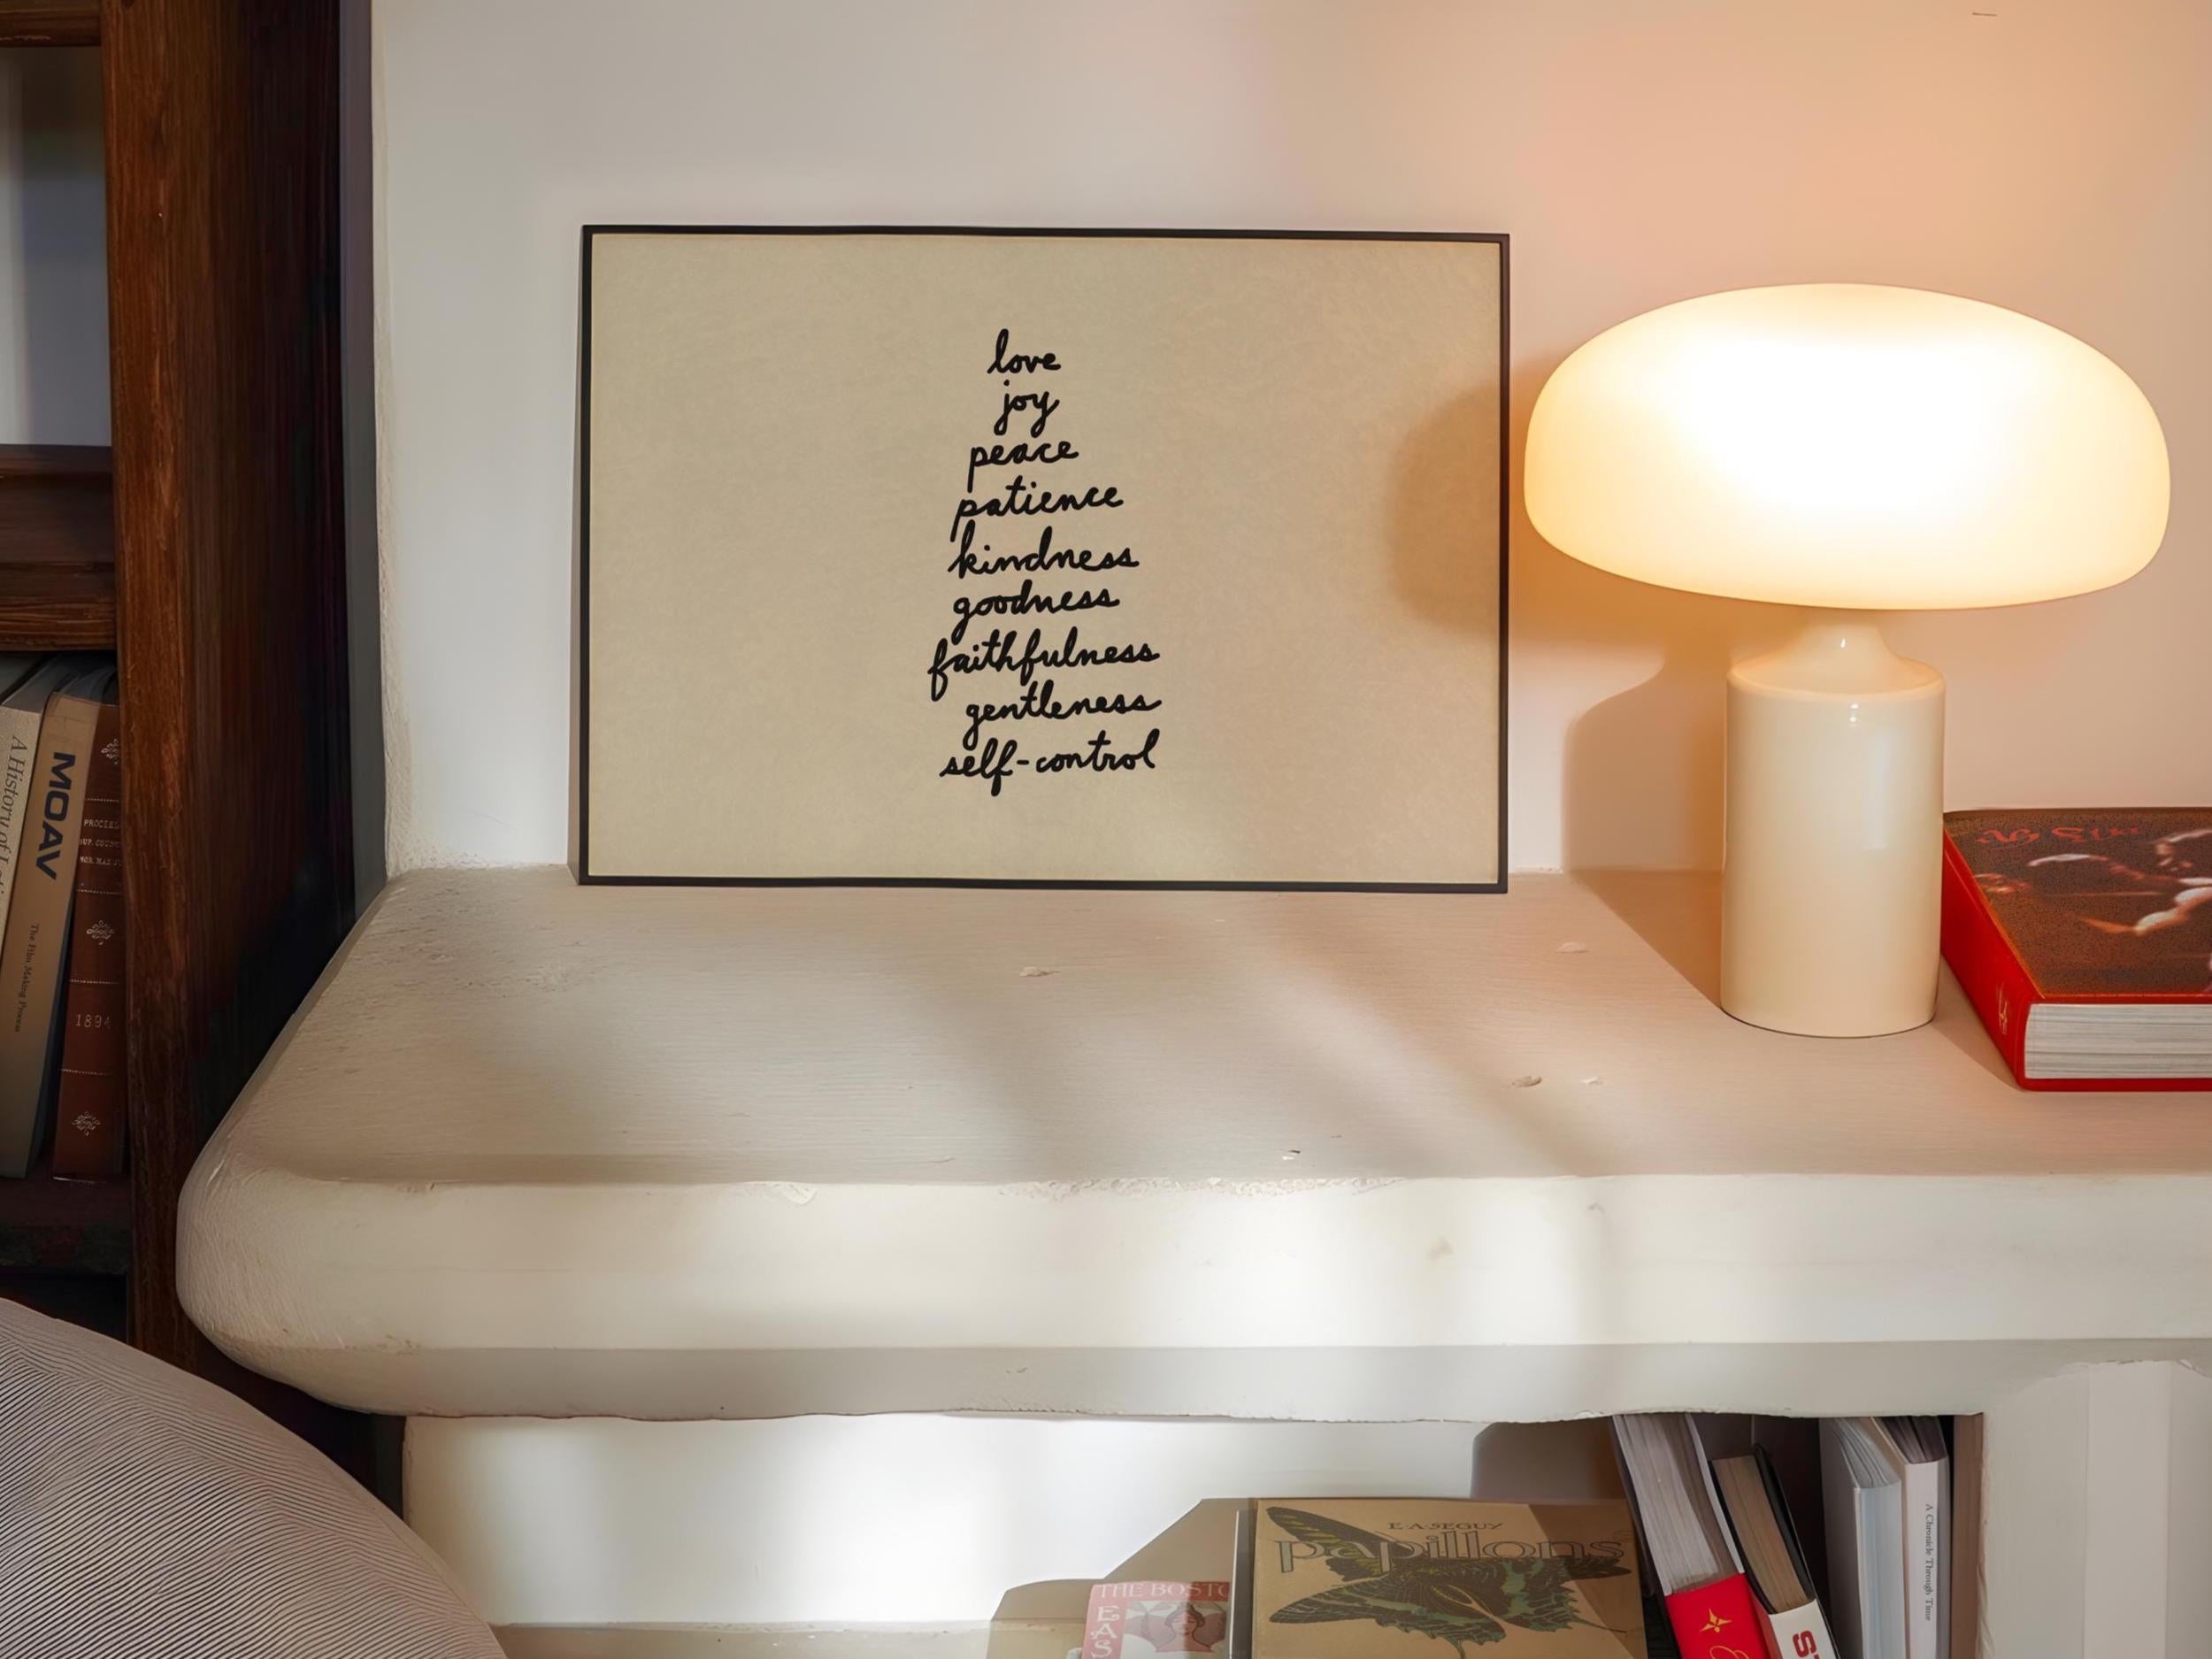 love
joy
peace
patience
kindness
goodness
faithfulness
gentleness
self-control
MOAV
The Film Making Process
A History of
1894
E·A·SEGUY
papillons
THE BOSTO
EAS
A Chronicle Through Time